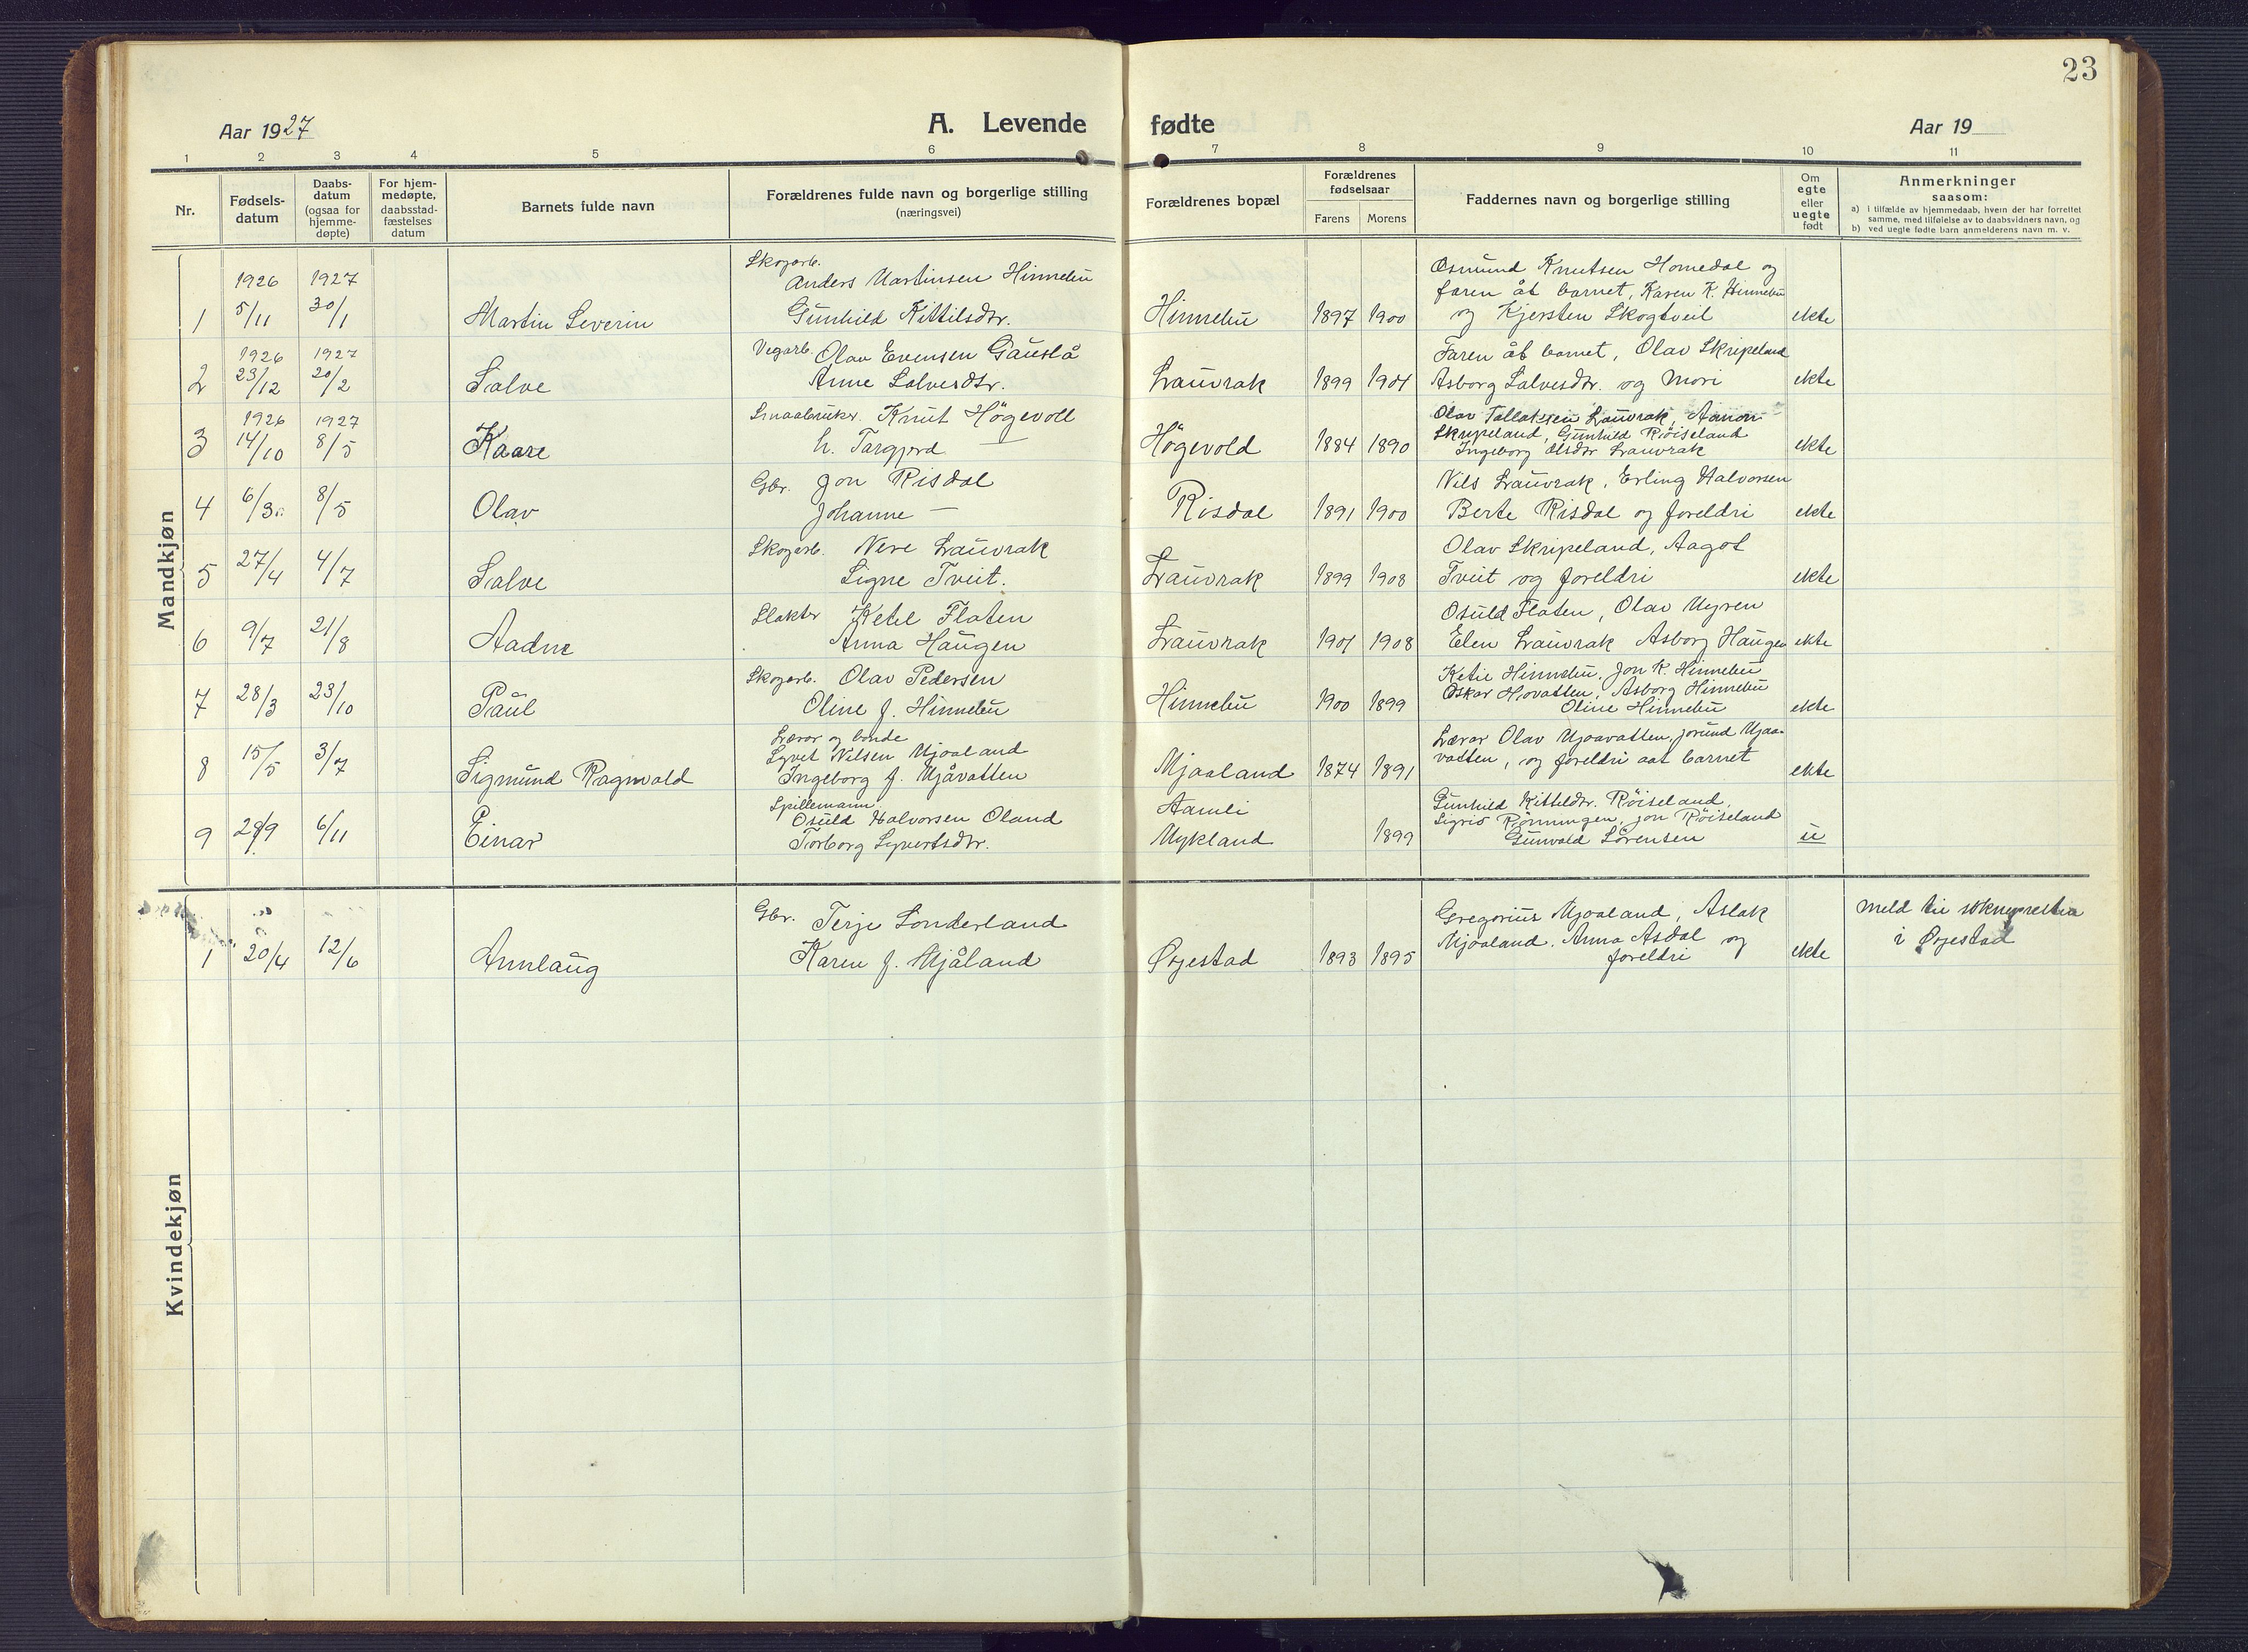 23
Aar 1927
A. Levende fødte
Aar 19
1 2 3 4 5 6 7 8 9 10 11
Nr.
Fødsels-
datum
Daabs-
datum
(ogsaa for
hjemme-
døpte)
For hjem-
medøpte,
daabsstad-
fæstelses
datum
Barnets fulde navn
Forældrenes fulde navn og borgerlige stilling
(næringsvei)
Forældrenes bopæl
Forældrenes
fødselsaar
Farens Morens
Faddernes navn og borgerlige stilling
Om
egte
eller
uegte
født
Anmerkninger
saasom:
a) i tilfælde av hjemmedaab, hvem der har forrettet
samme, med tilføielse av to daabsvidners navn, og
b) ved uegte fødte barn anmelderens navn m. v.
Mandkjøn
1
1926
5/11
1927
30/1
Martin Severin
Skogarb.
Anders Martinsen Hinnebu
Gunhild Kittilsdtr.
Hinnebu
1897 1900
Osmund Knutsen Homedal og
faren åt barnet, Karen K. Hinnebu
og Kjersten Skogtveit
ekte
2
1926
23/12
1927
20/2
Salve
Vegarb. Olav Evensen Gauslå
Anne Salvesdtr.
Lauvrak
1899 1901
Faren åt barnet, Olav Skripeland
Asborg Salvesdtr. og mori
ekte
3
1926
14/10
1927
8/5
Kaare
Smaabruker. Knut Högevoll
h. Targjerd —
Högevold
1884 1890
Olav Tallaksen Lauvrak, Aanon
Skripeland, Gunhild Röiseland
Ingeborg Olsdtr Lauvrak
ekte
4
6/3
8/5
Olav
Gbr. Jon Risdal
Johanne —
Risdal
1891 1900
Nils Lauvrak, Erling Halvorsen
Berte Risdal og foreldri
ekte
5
27/4
4/7
Salve
Skogarb. Nere Lauvrak
Signe Tveit.
Lauvrak
1899 1908
Olav Skripeland, Aagot
Tveit og foreldri
ekte
6
9/7
21/8
Aadne
Slakter Ketel Flaten
Anna Haugen
Lauvrak
1901 1908
Osuld Flaten, Olav Myren
Elen Lauvrak Asborg Haugen
ekte
7
28/3
23/10
Paul
Skogarb. Olav Pedersen
Oline J. Hinnebu
Hinnebu
1900 1899
Ketil Hinnebu, Jon K. Hinnebu
Oskar Hovatten, Asborg Hinnebu
Oline Hinnebu
ekte
8
15/5
3/7
Sigmund Ragnvald
Lærar og bonde
Syvet Nilsen Mjaaland
Ingeborg J. Mjåvatten
Mjaaland
1874 1891
Lærar Olav Mjaavatten, Jorund Mjaa-
vatten, og foreldri aat barnet
ekte
9
29/9
6/11
Einar
Spillemann
Osuld Halvorsen Oland
Torborg Syvertsdtr.
Aamli
Mykland
1899
Gunhild Kitteldtr. Röiseland,
Sigrid Rönningen, Jon Röiseland
Gunvald Sörensen
u
Kvindekjøn
1
20/4
12/6
Annlaug
Gbr. Terje Sonderland
Karen J. Mjåland
Øyestad
1893 1895
Gregorius Mjaaland, Aslak
Mjaaland. Anna Asdal og
foreldri
ekte
Meld til soknepresten
i Øyestad